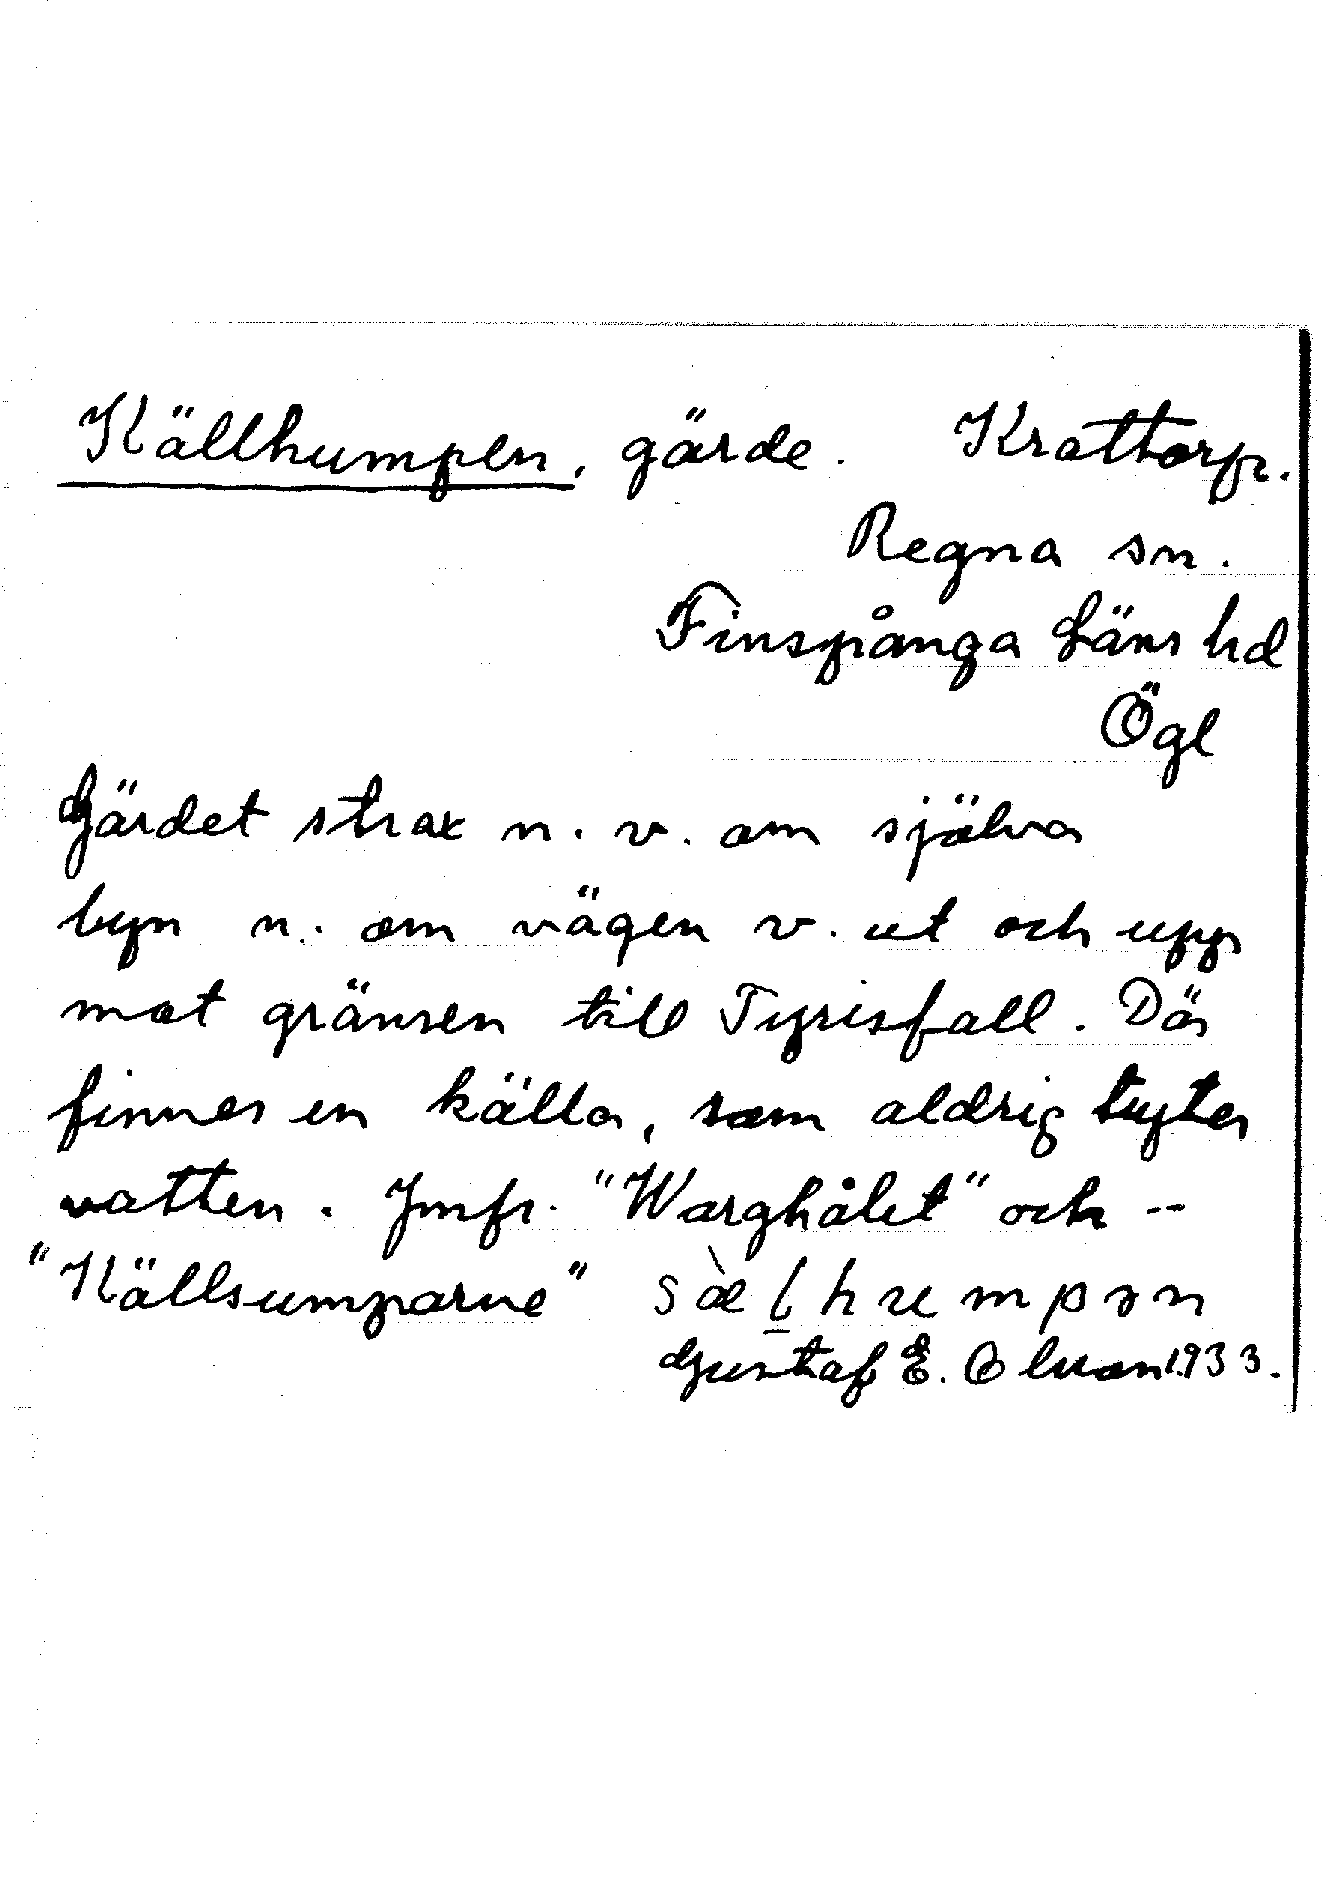 Källhumpen, gärde. Krattorp.
Regna sn.
Finspånga Läns hd
Ögl
Gärdet strax n. v. om själva
byn n. om vägen v. ut och upp
mot gränsen till Tyrisfall. Där
finnes en källa, som aldrig tryter
vatten. Jmfr. "Warghålet" och --
"Källsumparne" sæ̀lhumpən
Gustaf E. Olsson 1933.